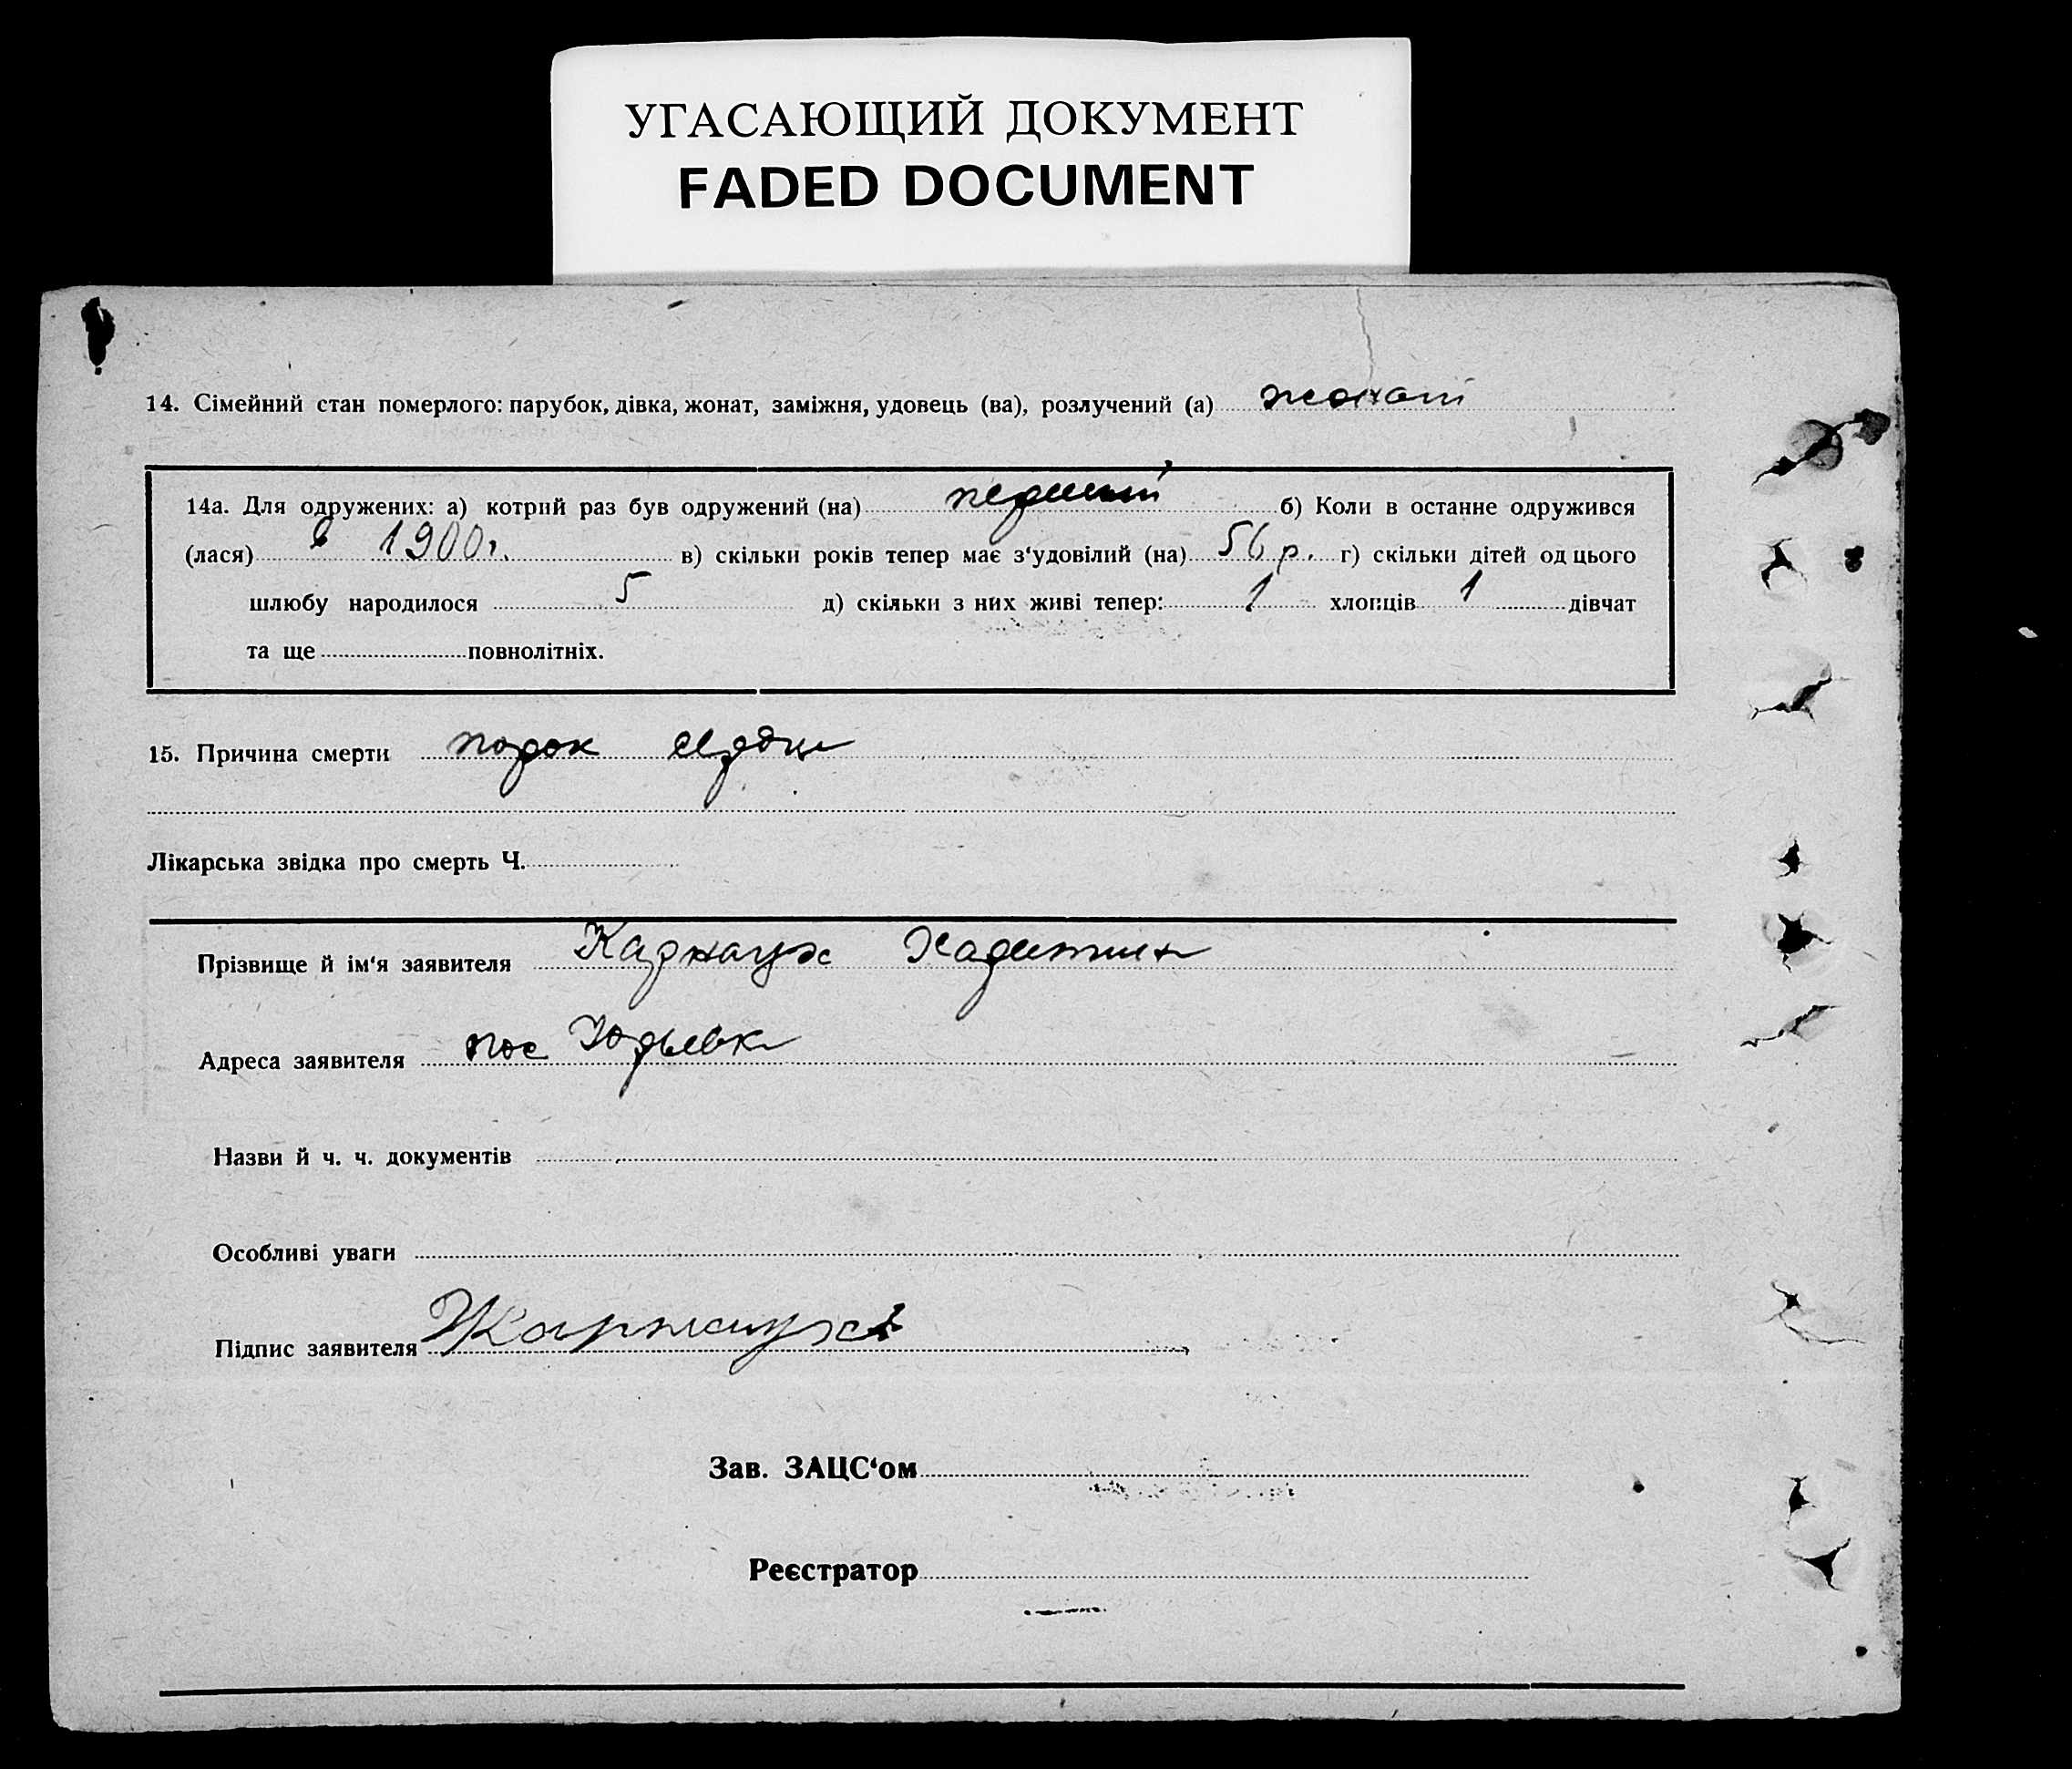 УГАСАЮЩИЙ ДОКУМЕНТ
FADED DOCUMENT
14. Сімейний стан померлого: парубок, дівка, жонат, заміжня, удовець (ва), розлучений (а) жонат
14а. Для одружених: а) котрий раз був одружений (на) первый б) Коли в останне одружився
(лася) в 1900 г. в) скільки років тепер має з‘удовілий (на) 56 р. г) скільки дітей од цього
шлюбу народилося 5 д) скільки з них живі тепер: 1 хлопців 1 дівчат
та ще повнолітніх.
15. Причина смерти порок сердца
Лікарська звідка про смерть Ч.
Прізвище й ім‘я заявителя Карнаух
Адреса заявителя пос Юрьевка
Назви й ч. ч. документів
Особливі уваги
Підпис заявителя Карнаух
Зав. ЗАЦС‘ом
Реєстратор